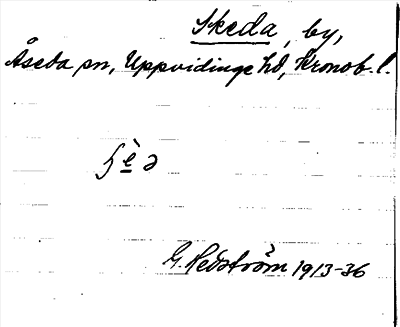 Skeda, by,
Åseda sn, Uppvidinge hd, Kronob. l.
G. Hedström 1913-36